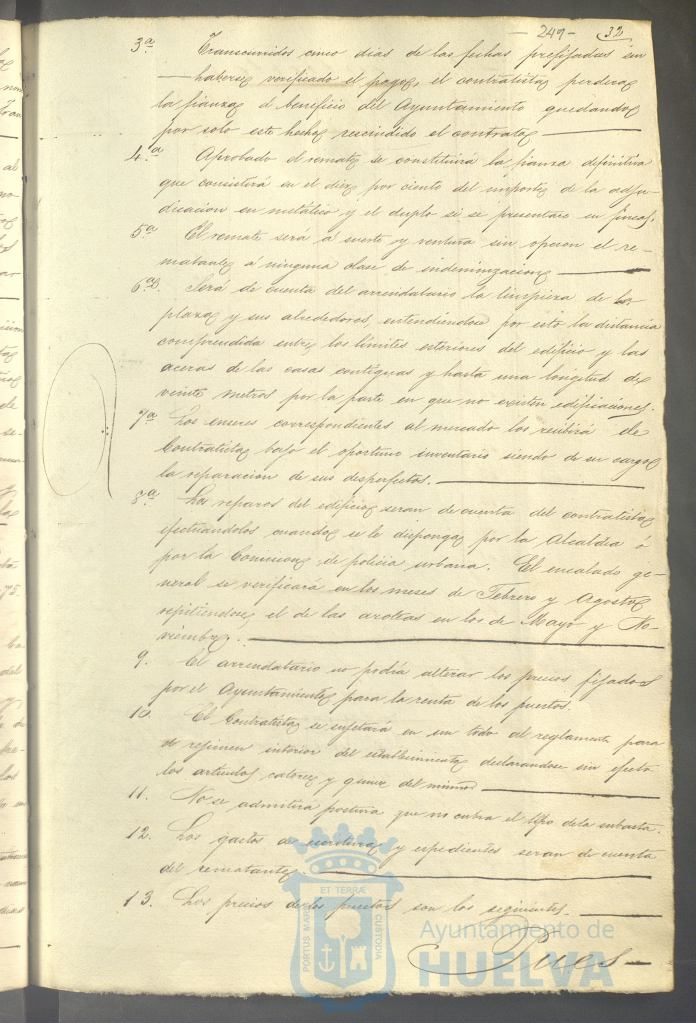 - 249 - 32
3ª Transcurridos cinco dias de las fechas prefijadas sin
haberse verificado el pago, el contratista perderá
la fianza á beneficio del Ayuntamiento quedando
por solo este hecho rescindido el contrato
4.ª Aprobado el remate se constituirá la fianza definitiva
que consistirá en el diez por ciento del importe de la adju-
dicacion en metálico y el duplo si se presentare en fincas.
5ª El remate será á suerte y ventura sin opcion el re-
matante á ninguna clase de indemnizacion
6ª Será de cuenta del arrendatario la limpieza de la
plaza y sus alrededores, entendiendose por esto la distancia
comprendida entre los límites esteriores del edificio y las
aceras de las casas contiguas y hasta una longitud de
veinte metros por la parte en que no existen edificaciones.
7ª Los enseres correspondientes al mercado los recibirá el
Contratista bajo el oportuno inventario siendo de su cargo
la reparacion de sus desperfectos.
8ª Los reparos del edificio seran de cuenta del contratista
efectuándolos cuando se le disponga por la Alcaldia ó
por la Comision de policia urbana. El encalado ge-
neral se verificará en los meses de Febrero y Agosto
repitiendose el de las azoteas en los de Mayo y No-
viembre.
9. El arrendatario no podrá alterar los precios fijados
por el Ayuntamiento para la renta de los puestos.
10. El Contratista se sujetará en un todo al reglamento para
el rejimen interior del establecimiento declarandose sin efecto
los articulos catorce y quince del mismo
11. No se admitira postura que no cubra el tipo de la subasta.
12. Los gastos de escritura y espedientes seran de cuenta
del rematante.
13. Los precios de los puestos son los siguientes.
Pues-
PORTUS MARIS ET TERRÆ CUSTODIA
Ayuntamiento de
HUELVA